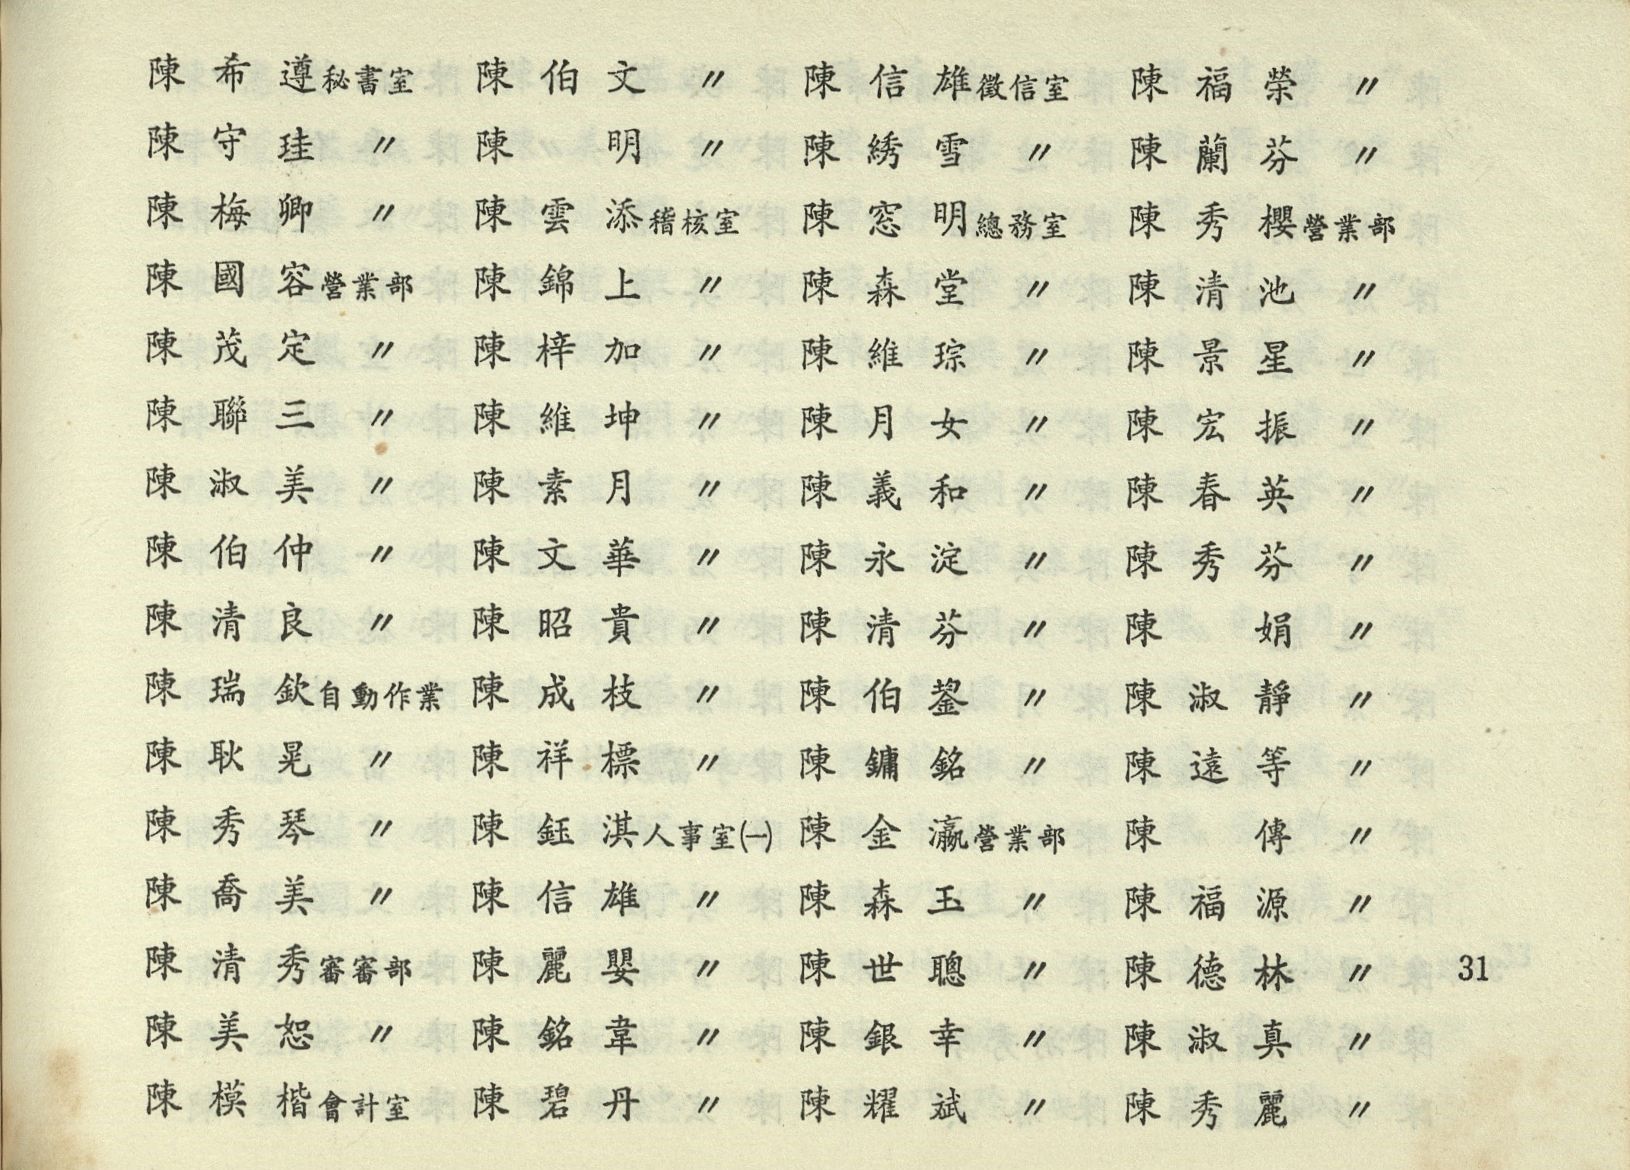 陳希遵秘書室 陳伯文〃 陳信雄徵信室 陳福榮〃
陳守珪〃 陳明〃 陳綉雪〃 陳蘭芬〃
陳梅卿〃 陳雲添稽核室 陳窓明總務室 陳秀櫻營業部
陳國容營業部 陳錦上〃 陳森堂〃 陳清池〃
陳茂定〃 陳梓加〃 陳維琮〃 陳景星〃
陳聯三〃 陳維坤〃 陳月女〃 陳宏振〃
陳淑美〃 陳素月〃 陳義和〃 陳春英〃
陳伯仲〃 陳文華〃 陳永淀〃 陳秀芬〃
陳清良〃 陳昭貴〃 陳清芬〃 陳娟〃
陳瑞欽自動作業 陳成枝〃 陳伯鋆〃 陳淑靜〃
陳耿晃〃 陳祥標〃 陳鏞銘〃 陳遠等〃
陳秀琴〃 陳鈺淇人事室㈠ 陳金瀛營業部 陳傳〃
陳喬美〃 陳信雄〃 陳森玉〃 陳福源〃
陳清秀審審部 陳麗嬰〃 陳世聰〃 陳德林〃 31
陳美恕〃 陳銘葦〃 陳銀幸〃 陳淑真〃
陳模楷會計室 陳碧丹〃 陳耀斌〃 陳秀麗〃